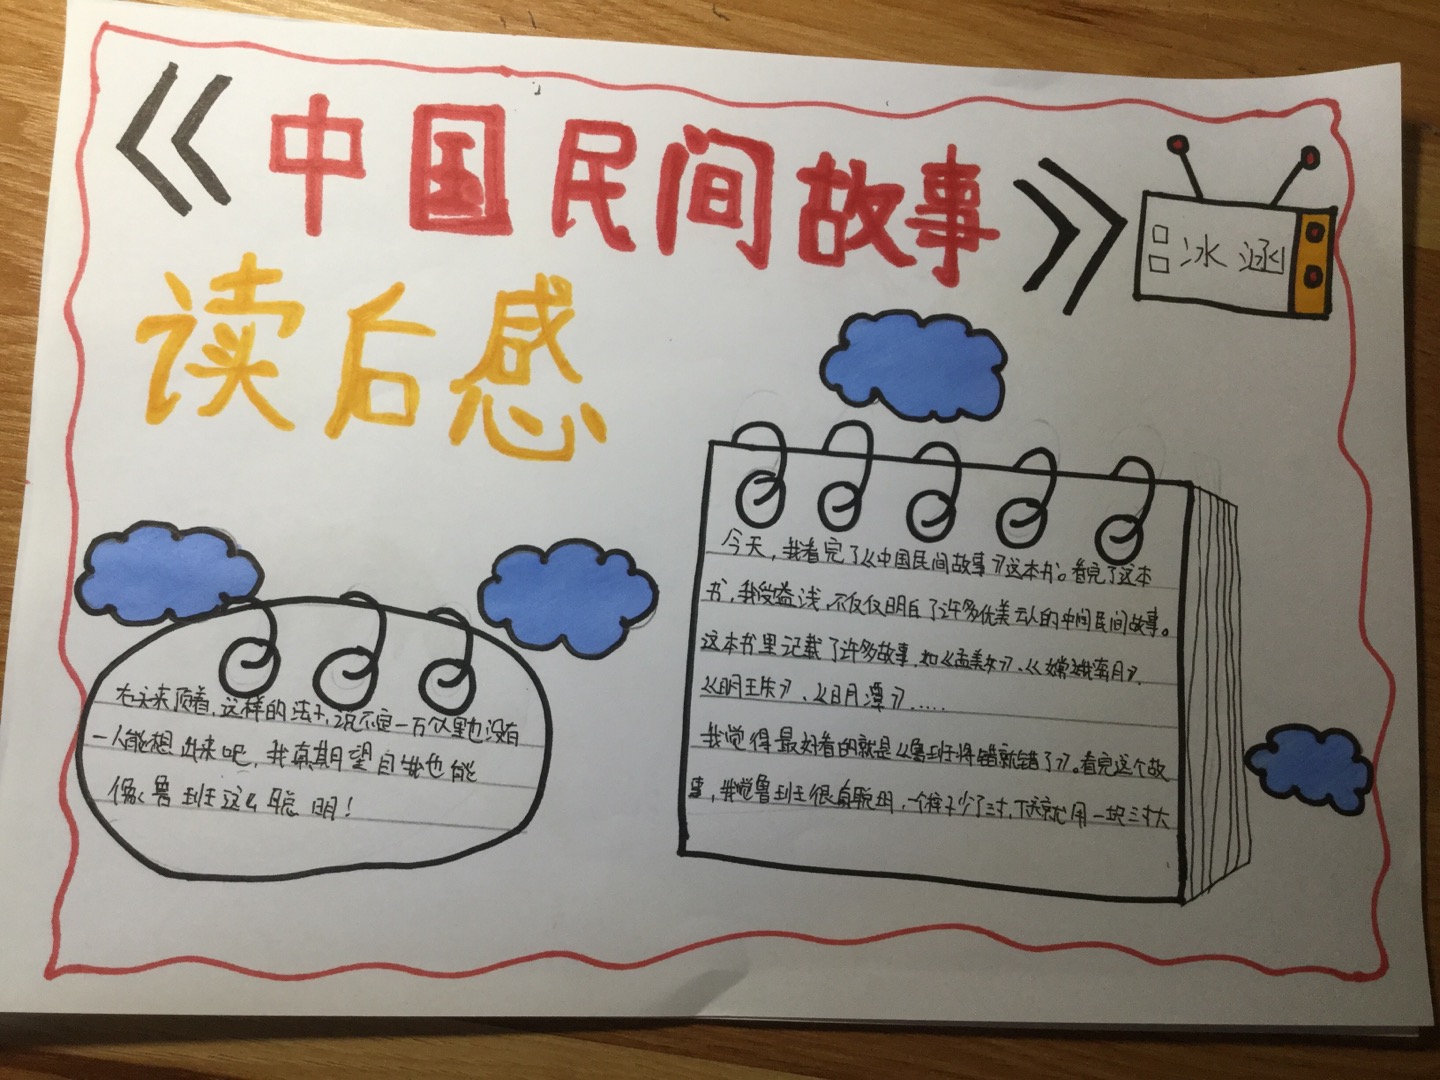 《中国民间故事》
读后感
冰涵
今天，我看完了《中国民间故事》这本书。看完了这本
书，我受益浅，不仅仅明白了许多优美动人的中国民间故事。
这本书里记载了许多故事，如《孟姜女》、《嫦娥奔月》、
《明珠》、《日月潭》……
我觉得最好看的就是《鲁班将错就错了》。看完这个故
事，我觉鲁班很聪明，一个柱子少了三寸，就用一块三寸大
石头来顶着，这样的法子，说不定一万个人里也没有
一人能想出来吧，我真期望自我也能
像鲁班这么聪明！